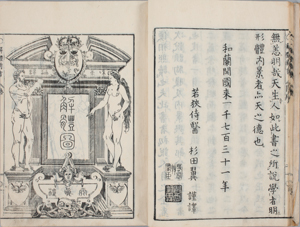 天生人如此書之所說學者明
形體內景者出天之德也
和蘭開國來一千七百三十一年
若狹侍醫 杉田翼 謹譯
解體圖